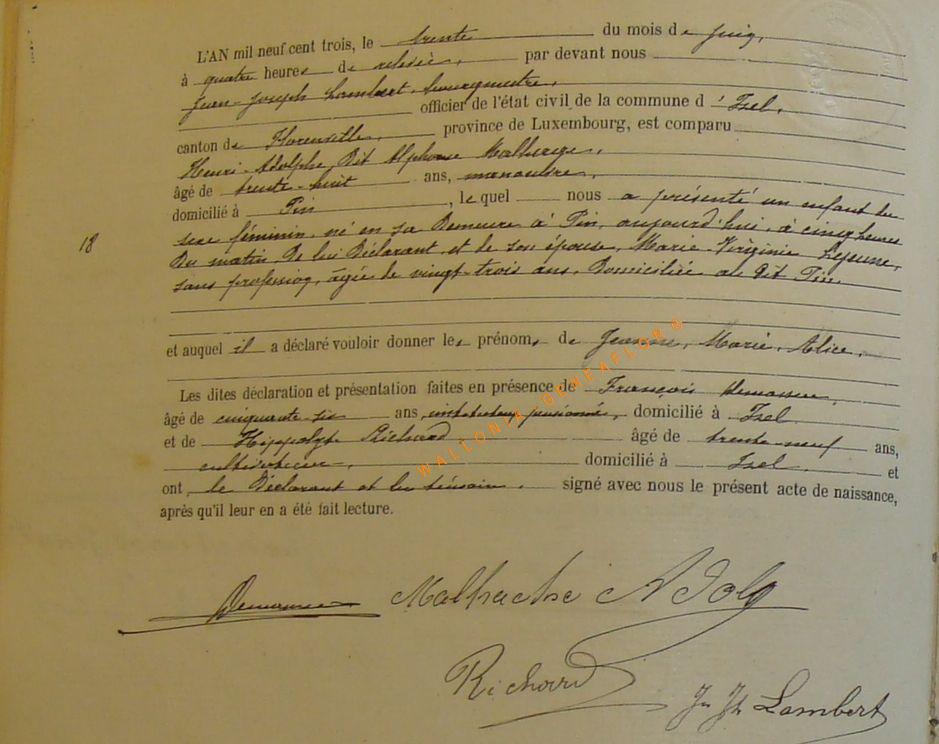 L'AN mil neuf cent trois, le trente du mois de juin,
à quatre heures de relevée, par devant nous
Jean-Joseph Lambert, bourgmestre,
officier de l'état civil de la commune d'Izel,
canton de Florenville, province de Luxembourg, est comparu
Henri-Adolphe, dit Alphonse
âgé de trente-huit ans, manœuvre,
domicilié à Pin, lequel nous a présenté un enfant du
18
sexe féminin, né en sa demeure à Pin, aujourd'hui, à cinq heures
du matin, de lui déclarant, et de son épouse, Marie-Virginie Lejeune,
sans profession, âgée de vingt-trois ans, domiciliée au dit Pin
et auquel il a déclaré vouloir donner les prénoms de Jeanne, Marie, Alice,
Les dites déclaration et présentation faites en présence de François
âgé de cinquante six ans, instituteur pensionné, domicilié à Izel
et de Hippolyte Richard âgé de trente-neuf ans,
cultivateur, domicilié à Izel et
ont, le déclarant et les témoins, signé avec nous le présent acte de naissance,
après qu'il leur en a été fait lecture.
WALLONIE GENEAFLORO
Adolp
Richard
Jn Jh Lambert